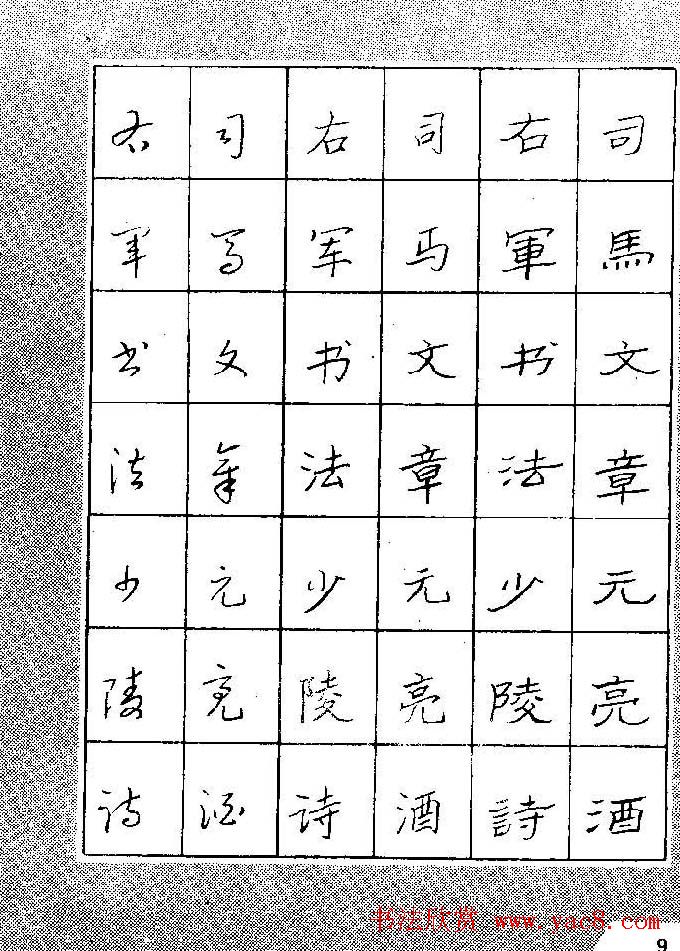 司馬文章元亮酒
右軍书法少陵詩
司马文章元亮酒
右军书法少陵诗
司马文章元亮酒
右军书法少陵诗
书法欣赏 www.yac8.com
9